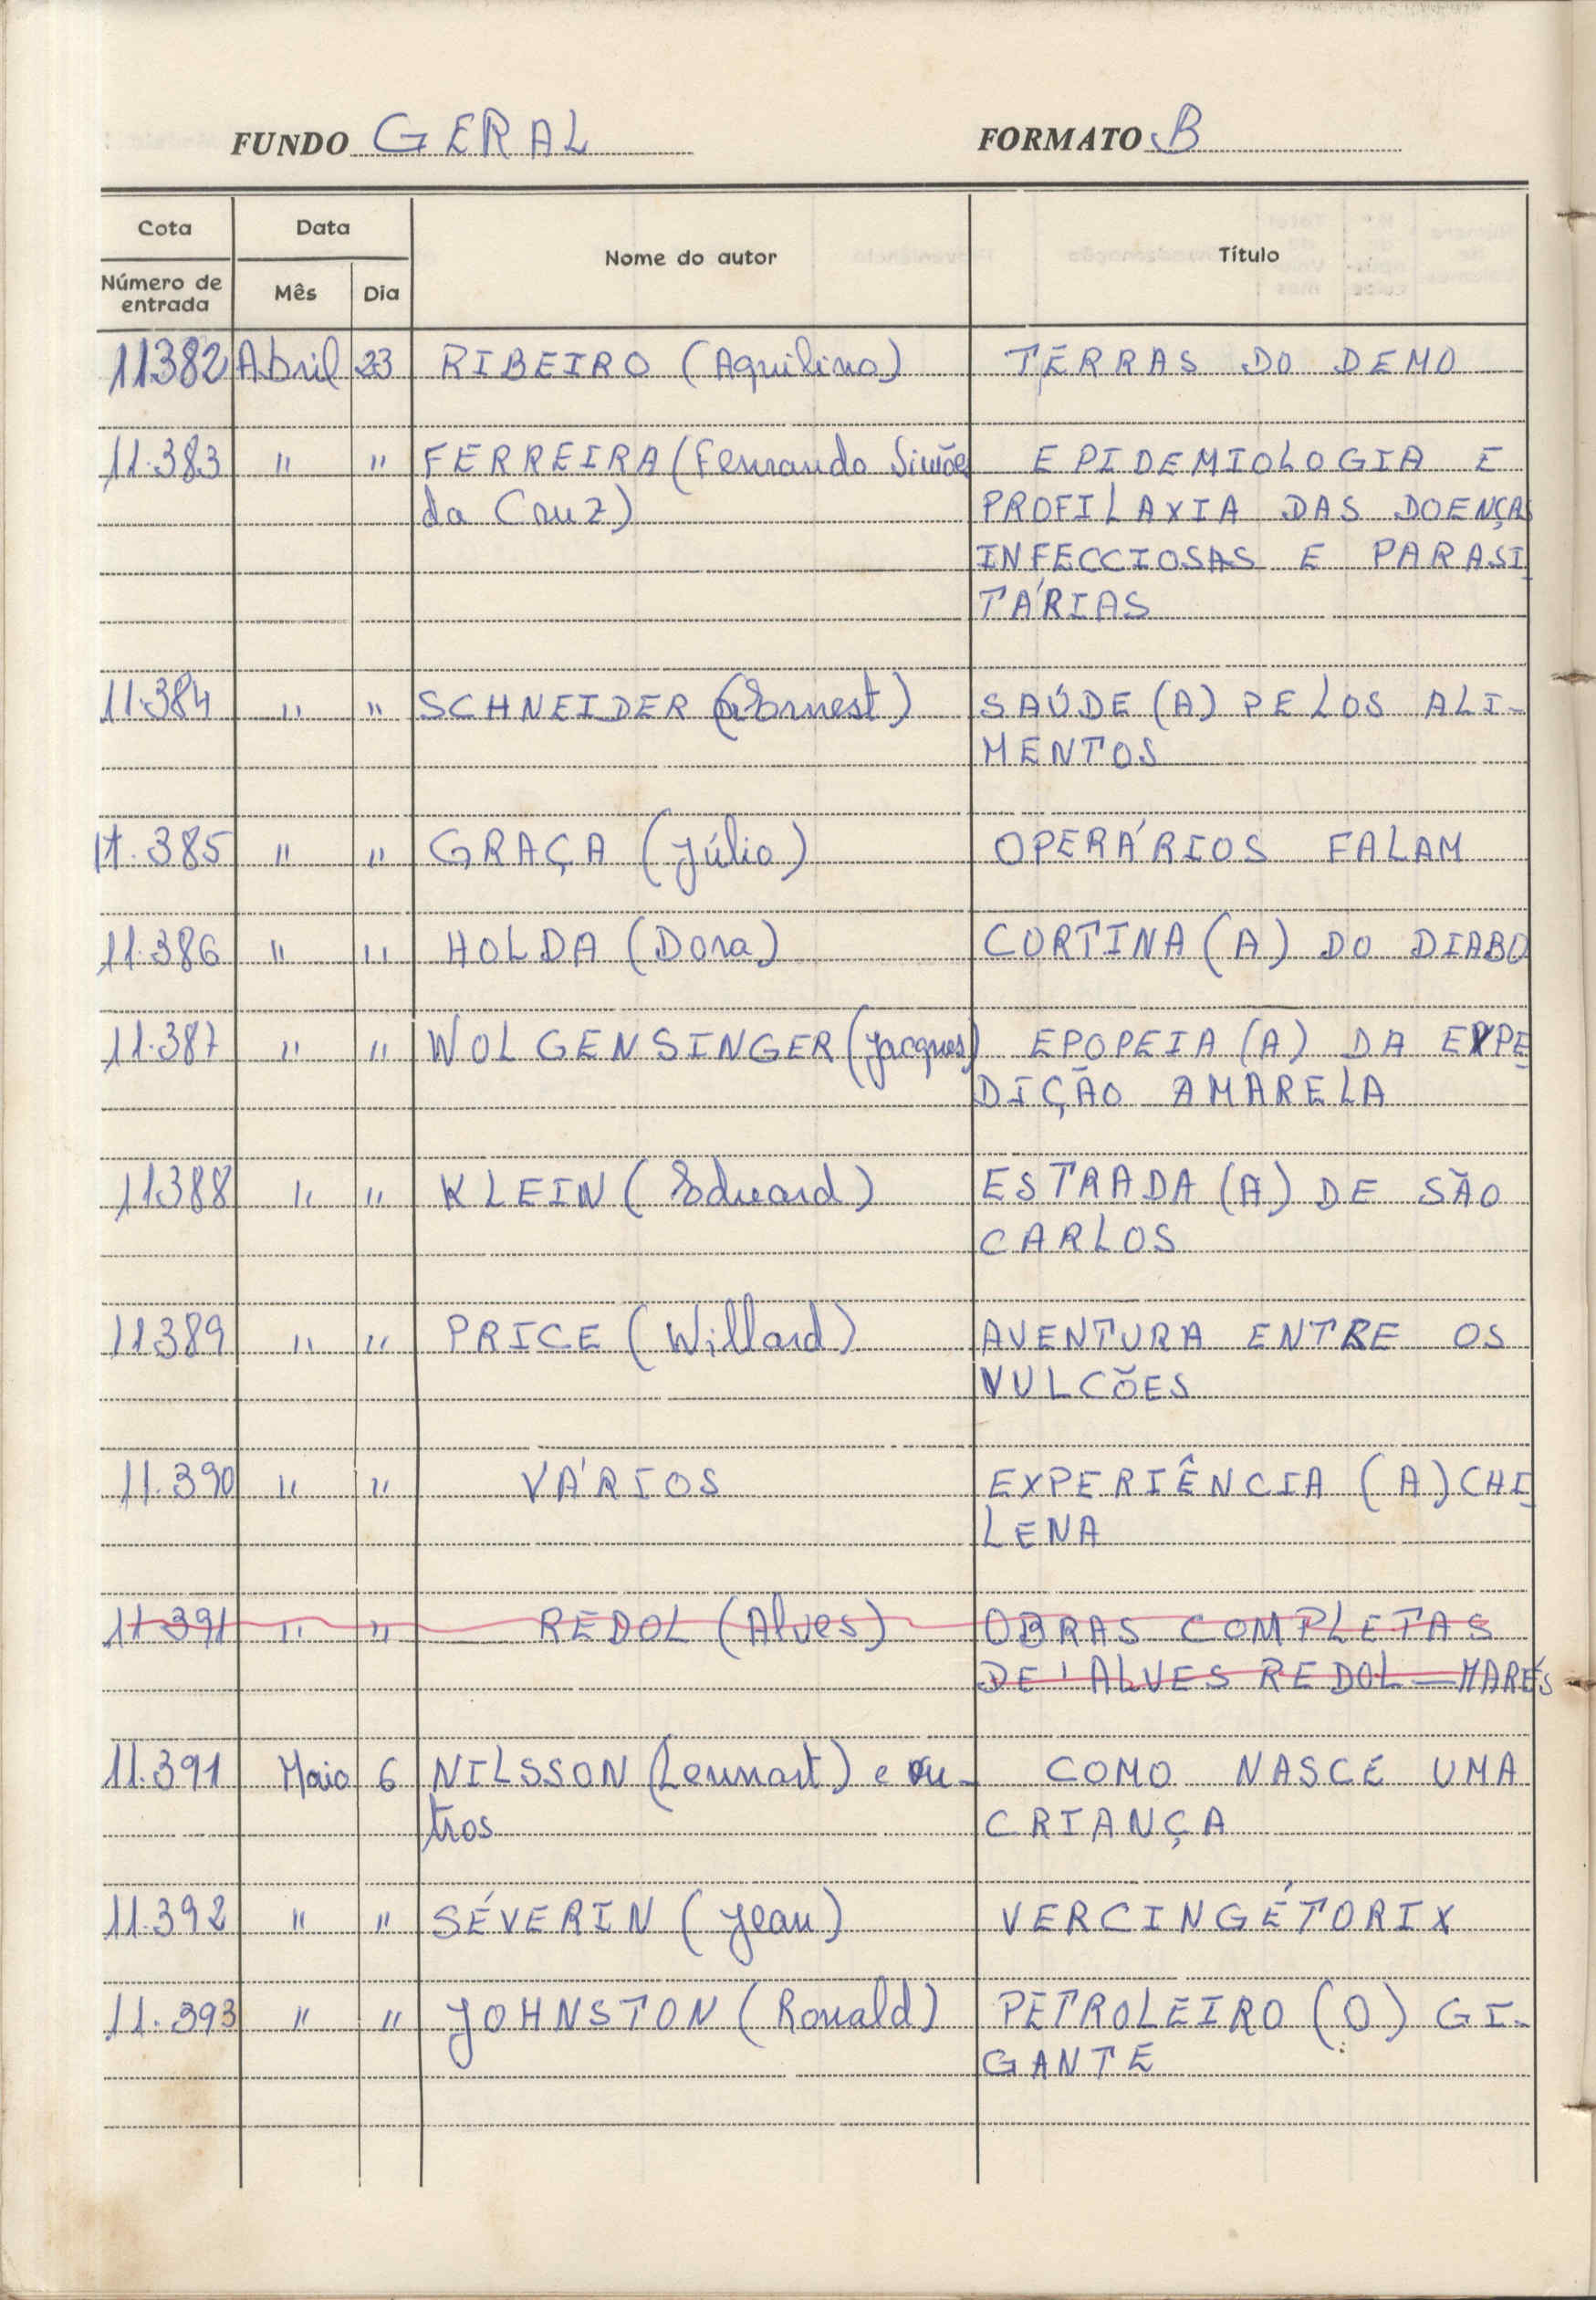 FUNDO GERAL FORMATO B
Cota Data Nome do autor Título
Número de entrada Mês Dia
11382 Abril 23 RIBEIRO (Aquilino) TERRAS DO DEMO
11.383 " " FERREIRA (Fernando Simões EPIDEMIOLOGIA E
da Cruz) PROFILAXIA DAS DOENÇAS
INFECCIOSAS E PARASI
TÁRIAS
11.384 " " SCHNEIDER (Ernest) SAÚDE (A) PELOS ALI-
MENTOS
11.385 " " GRAÇA (Júlio) OPERÁRIOS FALAM
11.386 " " HOLDA (Dora) CORTINA (A) DO DIABO
11.387 " " WOLGENSINGER (Jacques) EPOPEIA (A) DA EXPE
DIÇÃO AMARELA
11388 " " KLEIN (Eduard) ESTRADA (A) DE SÃO
CARLOS
11389 " " PRICE (Willard) AVENTURA ENTRE OS
VULCÕES
11.390 " " VÁRIOS EXPERIÊNCIA (A) CHI
LENA
11391 " " REDOL (Alves) OBRAS COMPLETAS
DE ALVES REDOL — MARÉS
11.391 Maio 6 NILSSON (Lennart) e ou- COMO NASCE UMA
tros CRIANÇA
11.392 " " SÉVERIN (Jean) VERCINGÉTORIX
11.393 " " JOHNSTON (Ronald) PETROLEIRO (O) GI-
GANTE